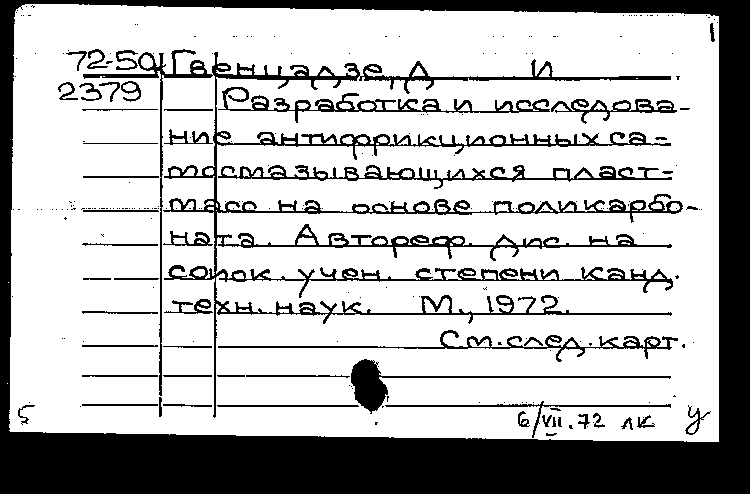 1
72-50к Гвенцадзе, Д И
2379 Разработка и исследова-
ние антифрикционных са-
мосмазывающихся пласт-
масс на основе поликарбо-
ната. Автореф. дис. на
соиск. учен. степени канд.
техн. наук. М., 1972.
См. след. карт.
5 6/VII.72 лк У